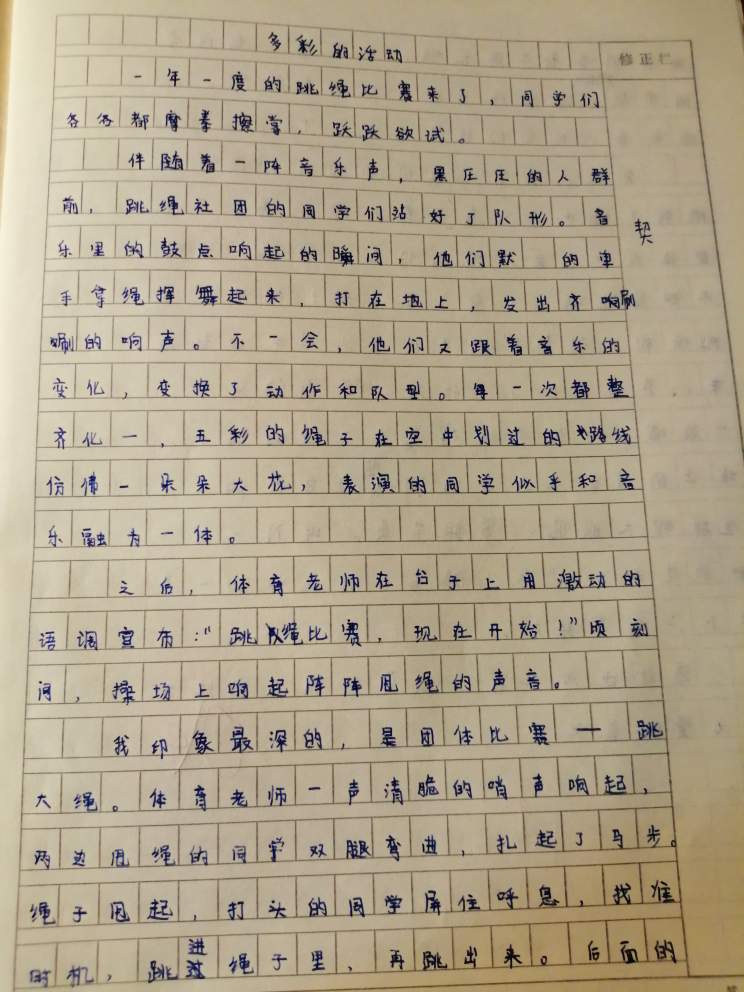 多彩的活动
修正栏
一年一度的跳绳比赛来了，同学们
各各都摩拳擦掌，跃跃欲试。
伴随着一阵音乐声，黑压压的人群
前，跳绳社团的同学们站好了队形。音
乐里的鼓点响起的瞬间，他们默契的单
手拿绳挥舞起来，打在地上，发出齐唰
唰的响声。不一会，他们又跟着音乐的
变化，变换了动作和队型。每一次都整
齐化一，五彩的绳子在空中划过的路线
仿佛一朵朵大花，表演的同学似乎和音
乐融为一体。
之后，体育老师在台子上用激动的
语调宣布：“跳绳比赛，现在开始！”顷刻
间，操场上响起阵阵甩绳的声音。
我印象最深的，是团体比赛——跳
大绳。体育老师一声清脆的哨声响起，
两边甩绳的同学双腿弯曲，扎起了马步。
绳子甩起，打头的同学屏住呼息，找准
时机，跳进绳子里，再跳出来。后面的